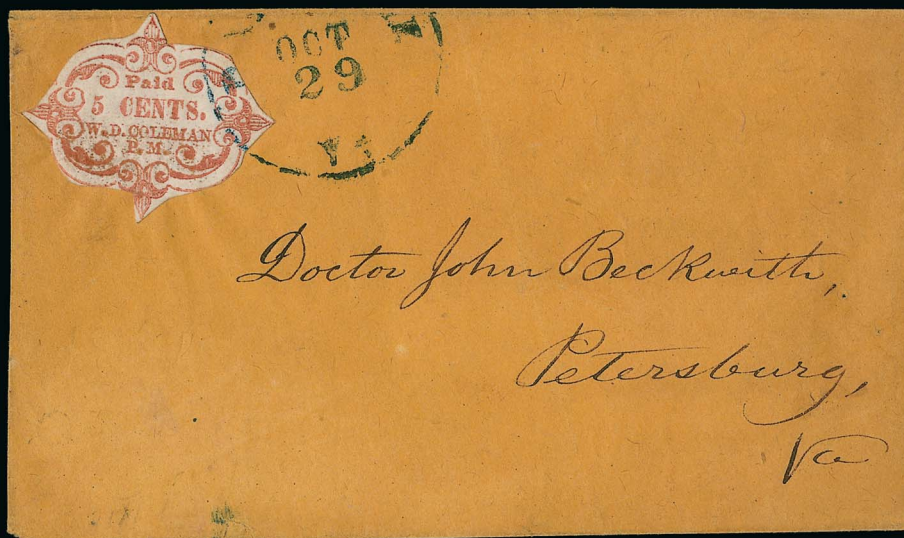 Paid
5 CENTS.
W. D. COLEMAN
P. M.
OCT
29
Va
Doctor John Beckwith,
Petersburg,
Va